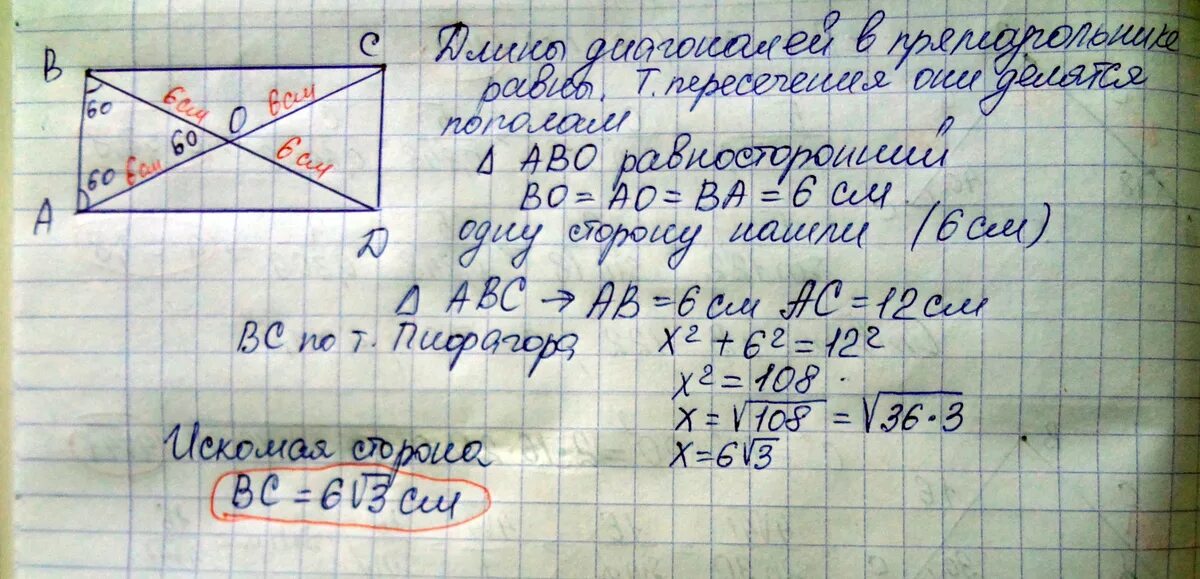 B
C
60
6см
O
6см
60
60
6см
6см
A
D
Длины диагоналей в прямоугольнике
равны. Т. пересечения они делятся
пополам
Δ ABO равносторонний
BO = AO = BA = 6 см
одну сторону нашли (6 см)
Δ ABC → AB = 6 см AC = 12 см
BC по т. Пифагора x² + 6² = 12²
x² = 108
x = √108 = √36·3
x = 6√3
Искомая сторона
BC = 6√3 см